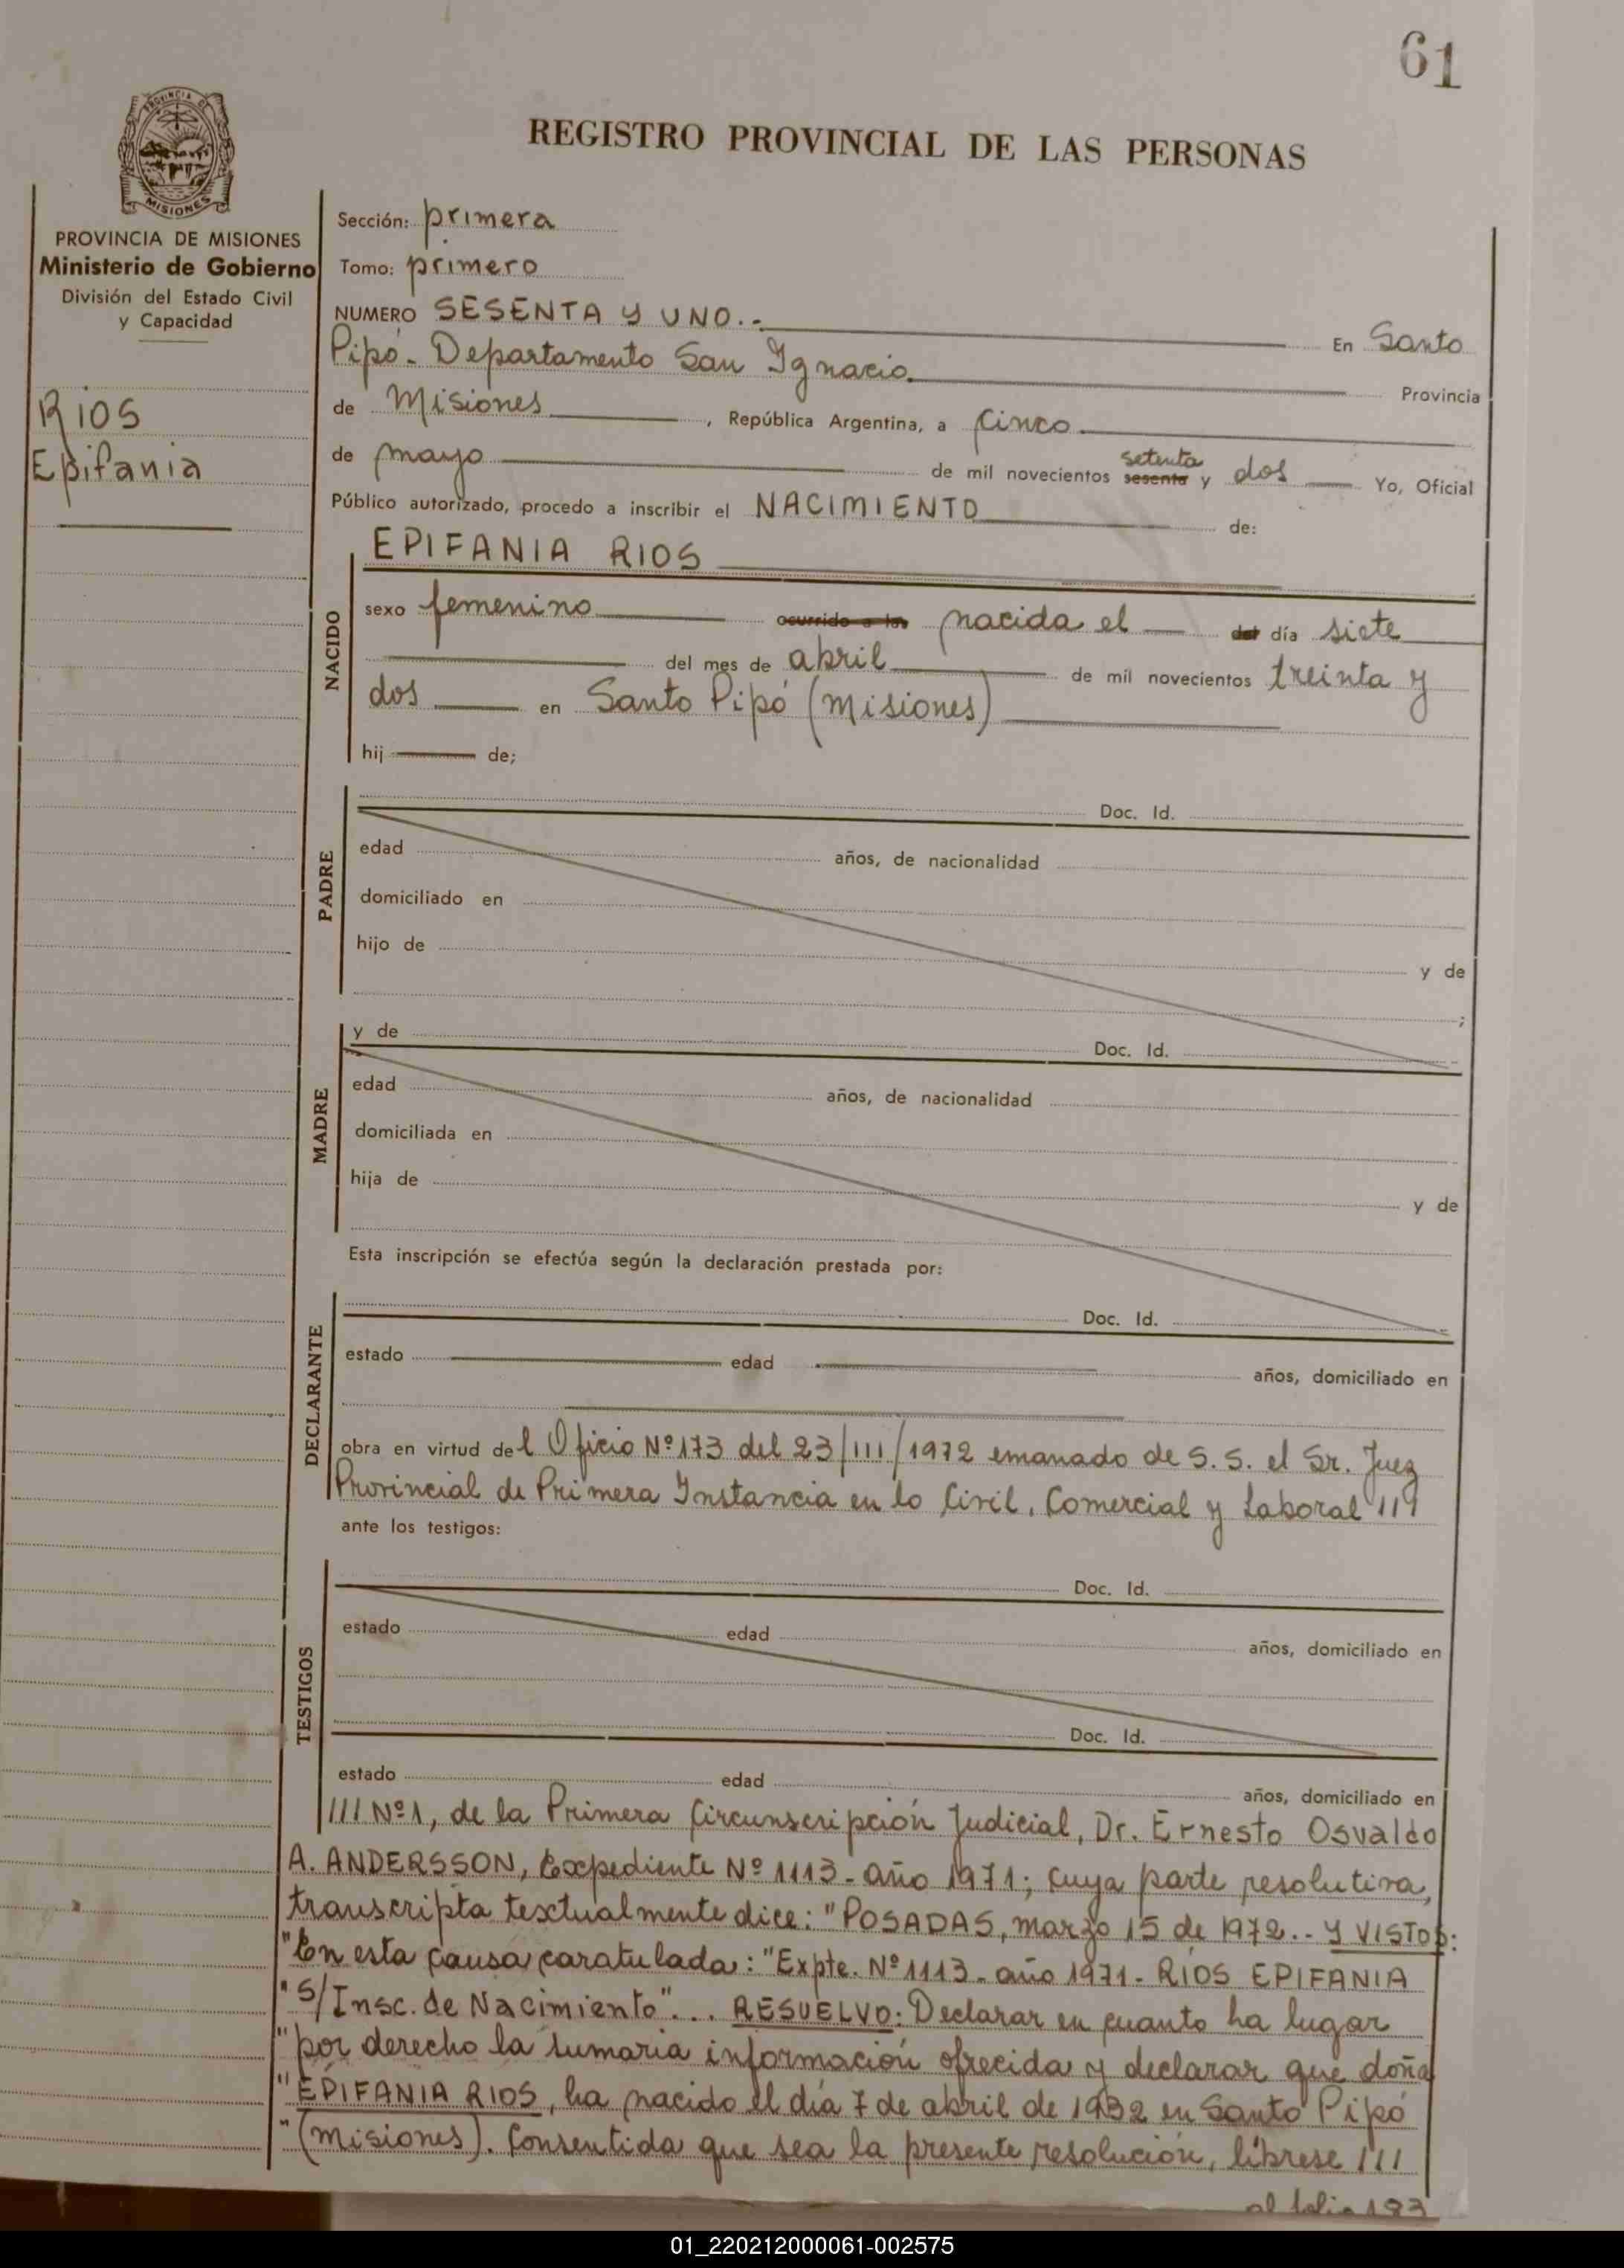 61
REGISTRO PROVINCIAL DE LAS PERSONAS
PROVINCIA DE
MISIONES
PROVINCIA DE MISIONES
Ministerio de Gobierno
División del Estado Civil
y Capacidad
RIOS
Epifania
Sección: primera
Tomo: primero
NUMERO SESENTA Y UNO.- En Santo
Pipó - Departamento San Ignacio Provincia
de Misiones, República Argentina, a cinco
de mayo de mil novecientos setenta sesenta y dos Yo, Oficial
Público autorizado, procedo a inscribir el NACIMIENTO de:
EPIFANIA RIOS
NACIDO
sexo femenino ocurrido a las nacida el del día siete
del mes de abril de mil novecientos treinta y
dos en Santo Pipó (Misiones)
hij de;
PADRE
Doc. Id.
edad años, de nacionalidad
domiciliado en
hijo de y de
;
MADRE
y de Doc. Id.
edad años, de nacionalidad
domiciliada en
hija de y de
Esta inscripción se efectúa según la declaración prestada por:
DECLARANTE
Doc. Id.
estado edad años, domiciliado en
obra en virtud del Oficio Nº 173 del 23/III/1972 emanado de S. S. el Sr. Juez
Provincial de Primera Instancia en lo Civil, Comercial y Laboral ///
ante los testigos:
TESTIGOS
Doc. Id.
estado edad años, domiciliado en
Doc. Id.
estado edad años, domiciliado en
/// Nº 1, de la Primera Circunscripción Judicial, Dr. Ernesto Osvaldo
A. ANDERSSON, Expediente Nº 1113 - año 1971; cuya parte resolutiva,
transcripta textualmente dice: "POSADAS, marzo 15 de 1972.- Y VISTOS:
"En esta causa caratulada: "Expte. Nº 1113 - año 1971 - RIOS EPIFANIA
"S/Insc. de Nacimiento"... RESUELVO: Declarar en cuanto ha lugar
"por derecho la sumaria información ofrecida y declarar que doña
"EPIFANIA RIOS, ha nacido el día 7 de abril de 1932 en Santo Pipó
"(Misiones). Consentida que sea la presente resolución, líbrese ///
al folio 183
01_220212000061-002575